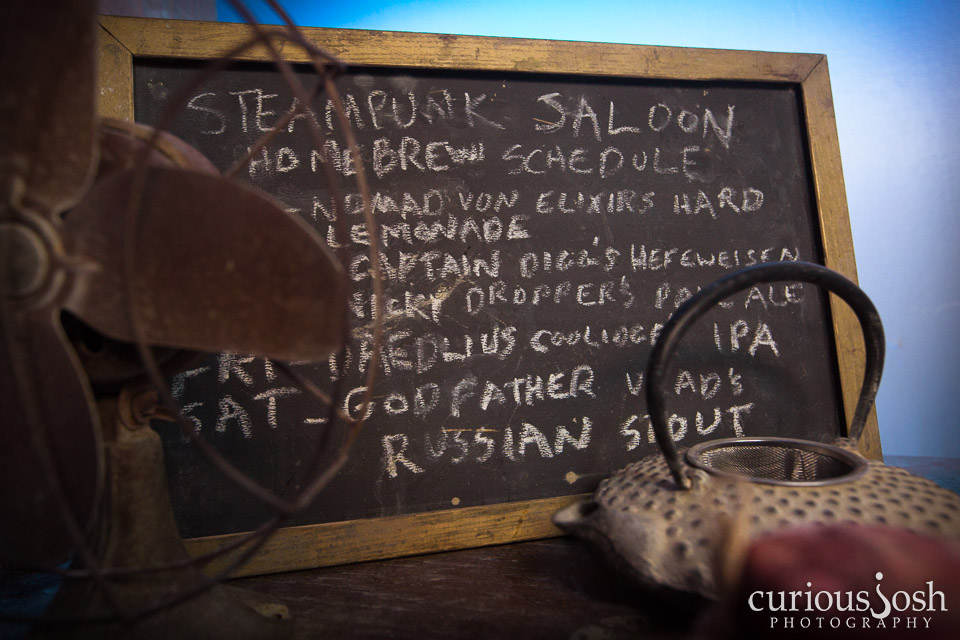 STEAMPUNK SALOON
HOMEBREW SCHEDULE
- NOMAD VON ELIXIRS HARD
LEMONADE
CAPTAIN DIGG'S HEFEWEISEN
DROPPER'S PALE ALE
IPA
FRI-
SAT - GODFATHER VLAD'S
RUSSIAN STOUT
curiousJosh
PHOTOGRAPHY